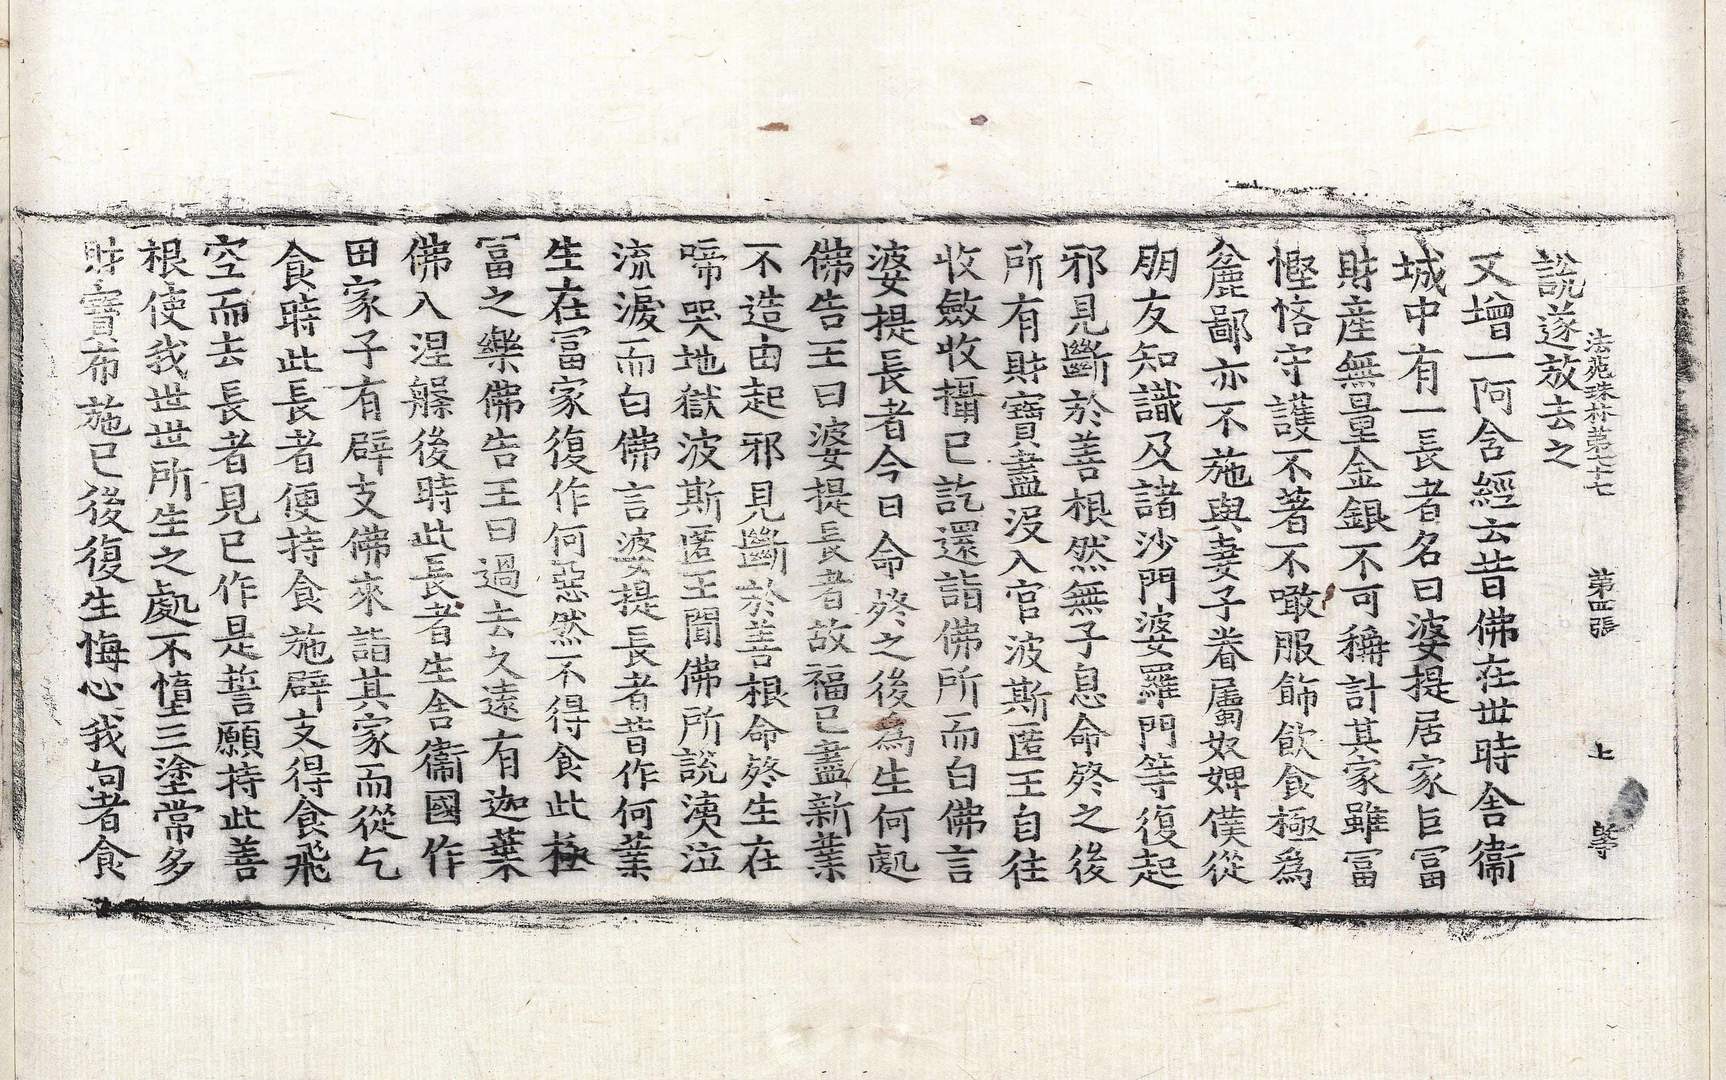 法苑珠林第七十七 第四張 上
說遂放去之
又增一阿含經云昔佛在世時舍衞
城中有一長者名曰婆提居家巨冨
財産無量金銀不可稱計其家雖冨
慳悋守護不著不噉服飾飲食極為
麁鄙亦不施與妻子眷屬奴婢僕從
朋友知識及諸沙門婆羅門等復起
邪見斷於善根然無子息命終之後
所有財寶盡没入官波斯匿王自往
收斂收攝已訖還詣佛所而白佛言
婆提長者今日命終之後為生何處
佛告王曰婆提長者故福已盡新業
不造由起邪見斷於善根命終生在
啼哭地獄波斯匿王聞佛所說洟泣
流淚而白佛言婆提長者昔作何業
生在冨家復作何惡然不得食此極
冨之樂佛告王曰過去久遠有迦葉
佛入涅槃後時此長者生舍衞國作
田家子有辟支佛來詣其家而從乞
食時此長者便持食施辟支得食飛
空而去長者見已作是誓願持此善
根使我世世所生之處不墮三塗常多
財寶布施已後復生悔心我向者食